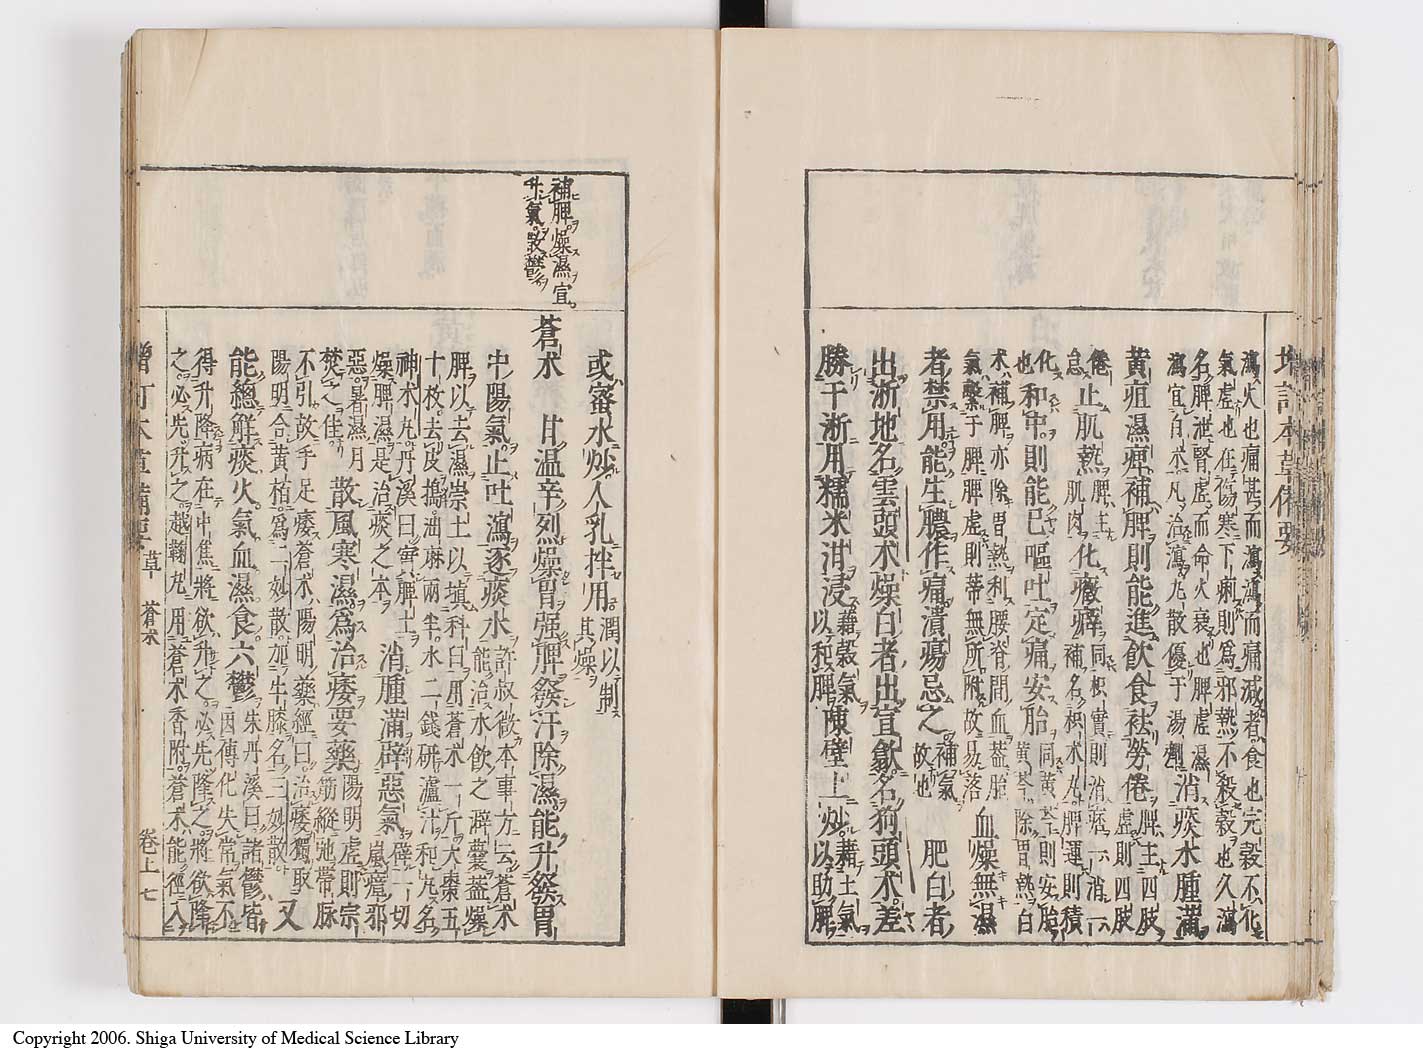 増訂本草備要
瀉火也痛甚而瀉瀉而痛減者食也完穀不化
氣虛也在傷寒下痢則為邪熱不殺穀也久瀉
名脾泄腎虛而命火衰也脾虛濕
瀉宜白朮凡治瀉丸散優于湯劑 消痰水腫滿
黃疸濕痺補脾則能進飲食袪勞倦 脾主四肢
虛則四肢
倦
怠 止肌熱 脾主
肌肉 化癥癖 同枳實則治痞一消一
補名枳朮丸脾運則積
化
也 和中則能已嘔吐定痛安胎 同黃芩則安胎
黃芩除胃熱白
朮補脾亦除胃熱利腰脊間血蓋胎
氣繫于脾脾虛則蒂無所附故易落 血燥無濕
者禁用能生膿作痛潰瘍忌之 補氣
故也 肥白者
出浙地名雲頭朮燥白者出宣歙名狗頭朮差
勝于浙用糯米泔浸 藉穀氣
以和脾 陳壁土炒 藉土氣
以助脾
或蜜水炒人乳拌用 潤以制
其燥
補脾燥濕宣
升氣散鬱
蒼朮 甘溫辛烈燥胃强脾發汗除濕能升發胃
中陽氣止吐瀉逐痰水 許叔微本事方云蒼朮
能治水飲之澼囊蓋燥
脾以去濕崇土以填科臼用蒼朮一斤大棗五
十枚去皮搗油麻兩半水二錢研濾汁和丸名
神朮丸丹溪曰實脾土
燥脾濕是治痰之本 消腫滿辟惡氣 辟一切
嵐瘴邪
惡暑濕月
焚之佳 散風寒濕爲治痿要藥 陽明虛則宗
筋縱弛帶脉
不引故手足痿蒼朮陽明藥經曰治痿獨取
陽明合黃栢爲二妙散加牛膝名三妙散 又
能總解痰火氣血濕食六鬱 朱丹溪曰諸鬱皆
因傳化失常氣不
得升降病在中焦將欲升之必先降之將欲降
之必先升之越鞠丸用蒼朮香附蒼朮能徑入
增訂本草備要 草 蒼朮 卷上 七
Copyright 2006. Shiga University of Medical Science Library